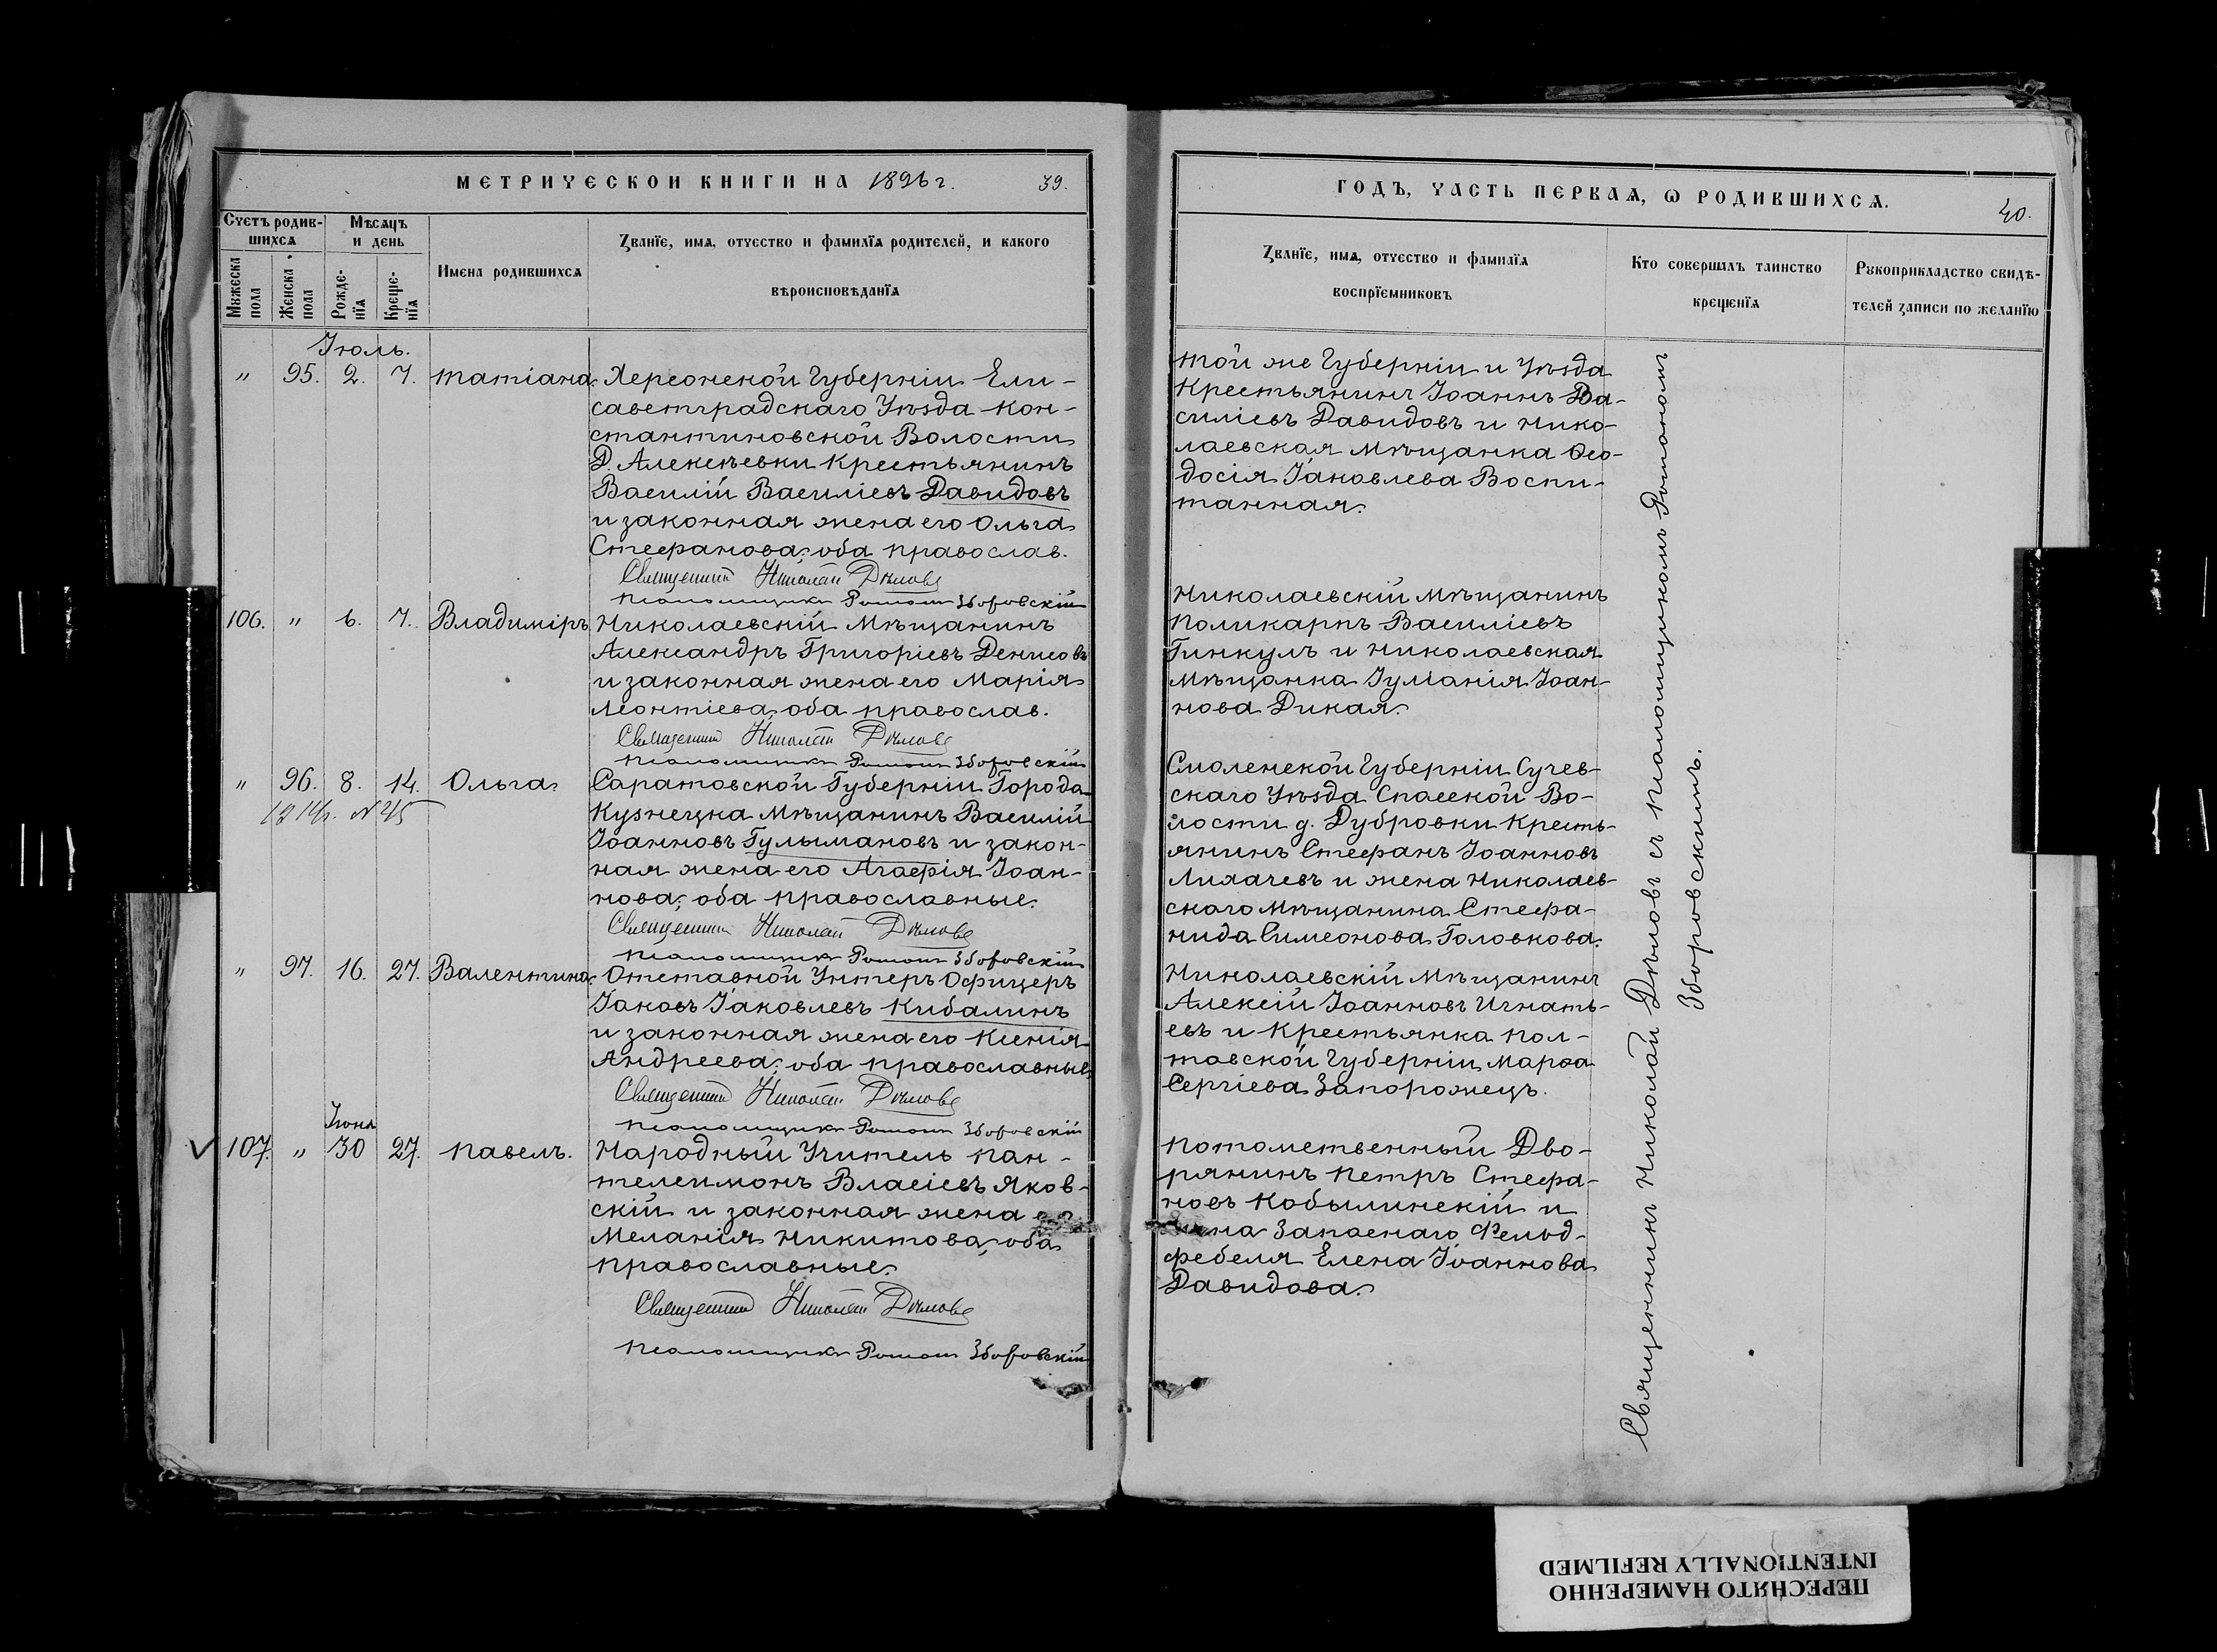 МЕТРИЧЕСКОИ КНИГИ НА 1896 г. 39.
Счетъ родив-
шихся
Мѣсяцъ
и день
Мужеска
пола
Женска
пола
Рожде-
нія
Креще-
нія
Имена родившихся
Званіе, имя, отчество и фамилія родителей, и какого
вѣроисповѣданія
Іюль.
" 95. 2. 7. Татіана.
Херсонской Губерніи Ели-
саветградскаго Уѣзда Кон-
стантиновской Волости
Д. Алексѣевки Крестьянинъ
Василій Василіевъ Давидовъ
и законная жена его Ольга
Стефанова; оба православ.
Священникъ Николай Дѣловъ
Псаломщикъ Романъ Зборовскій
106. " 6. 7. Владиміръ
Николаевскій Мѣщанинъ
Александръ Григоріевъ Денисовъ
и законная жена его Марія
Леонтіева, оба православ.
Священникъ Николай Дѣловъ
Псаломщикъ Романъ Зборовскій
" 96. 8. 14. Ольга.
N 45
Саратовской Губерніи Города
Кузнецка Мѣщанинъ Василій
Іоанновъ Гулымановъ и закон-
ная жена его Агафія Іоан-
нова; оба православные.
Священникъ Николай Дѣловъ
Псаломщикъ Романъ Зборовскій
" 97. 16. 27. Валентина.
Отставной Унтеръ Офицеръ
Іаковъ Іаковлевъ Кибалинъ
и законная жена его Ксенія
Андреева; оба православные
Священникъ Николай Дѣловъ
Псаломщикъ Романъ Зборовскій
Іюня
107. " 30 27. Павелъ.
Народный Учитель Пан-
телеимонъ Власіевъ Яков-
скій и законная жена его
Меланія Никитова, оба
православные.
Священникъ Николай Дѣловъ
Псаломщикъ Романъ Зборовскій
ГОДЪ, ЧАСТЬ ПЕРВАЯ, Ѡ РОДИВШИХСЯ. 40.
Званіе, имя, отчество и фамилія
воспріемниковъ
Кто совершалъ таинство
крещенія
Рукоприкладство свидѣ-
телей записи по желанію
Той же Губерніи и Уѣзда
Крестьянинъ Іоаннъ Ва-
силіевъ Давидовъ и Нико-
лаевская Мѣщанка Ѳео-
досія Іаковлева Воспи-
танная.
Николаевскій Мѣщанинъ
Поликарпъ Василіевъ
Гинкулъ и Николаевская
Мѣщанка Іуліанія Іоан-
нова Дикая.
Смоленской Губерніи Сучев-
скаго Уѣзда Спасской Во-
лости д. Дубровки Кресть-
янинъ Стефанъ Іоанновъ
Лихачевъ и жена Николаев-
скаго Мѣщанина Стефа-
нида Симеонова Головкова.
Николаевскій Мѣщанинъ
Алексій Іоанновъ Игнать-
евъ и Крестьянка Пол-
тавской Губерніи Марѳа
Сергіева Запорожецъ.
Потомственный Дво-
рянинъ Петръ Стефа-
новъ Кобылинскій и
жена Запаснаго Фельд-
фебеля Елена Іоаннова
Давидова.
Священникъ Николай Дѣловъ съ Псаломщикомъ Романомъ
Зборовскимъ.
ПЕРЕСНЯТО НАМЕРЕННО
INTENTIONALLY REFILMED